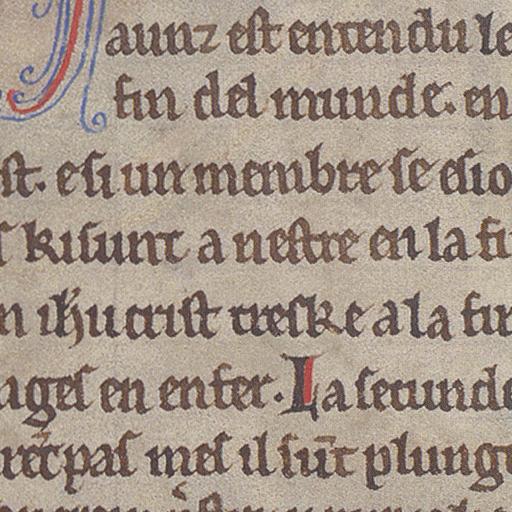 aunz est entendu le
fin del munde. en
st. e si un membre se esio
ki sunt a nestre en la fi
n ihu crist treske a la fin
uges en enfer. La secunde
pas mes il sūt plung